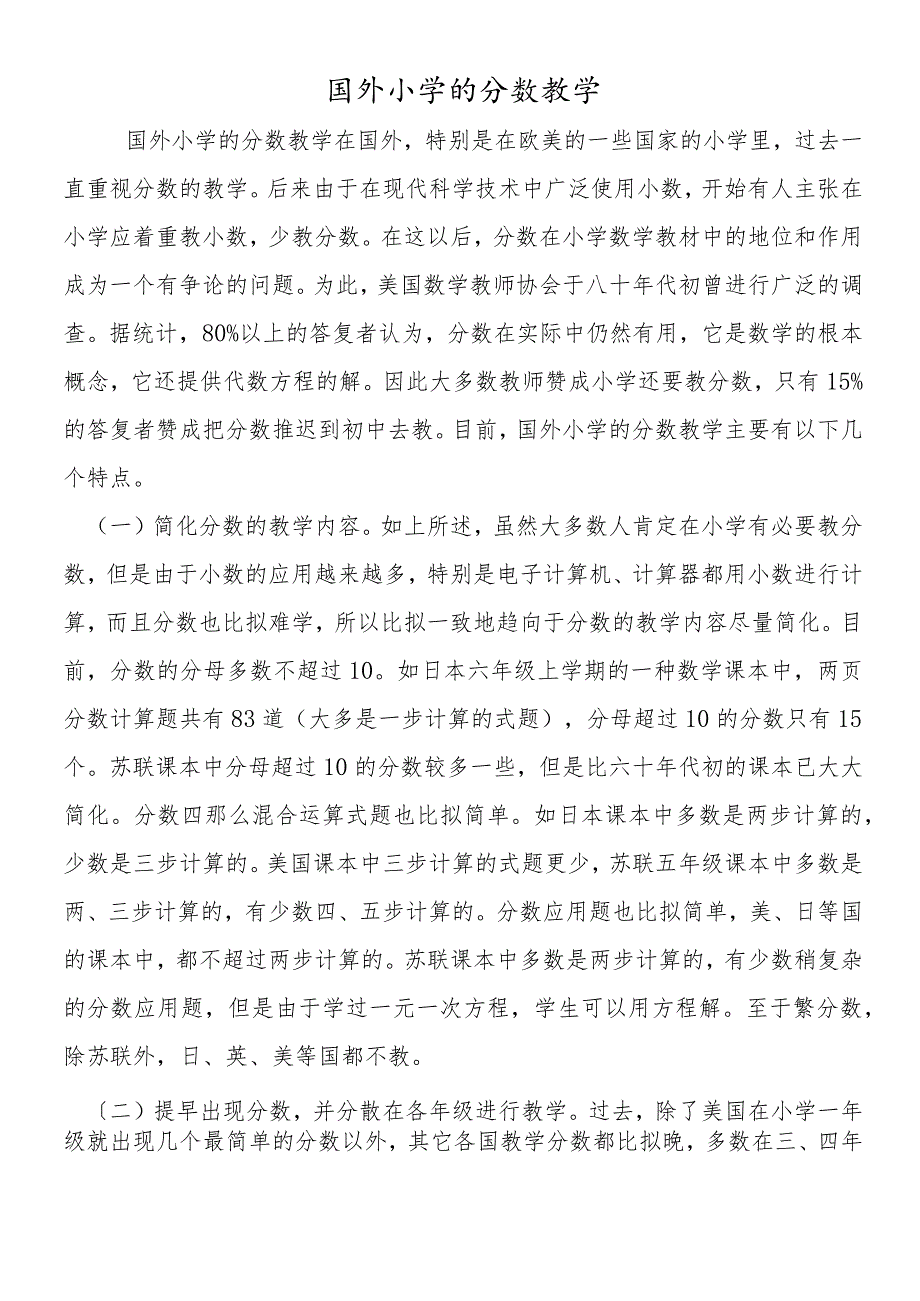 国外小学的分数教学
国外小学的分数教学在国外，特别是在欧美的一些国家的小学里，过去一
直重视分数的教学。后来由于在现代科学技术中广泛使用小数，开始有人主张在
小学应着重教小数，少教分数。在这以后，分数在小学数学教材中的地位和作用
成为一个有争论的问题。为此，美国数学教师协会于八十年代初曾进行广泛的调
查。据统计，80%以上的答复者认为，分数在实际中仍然有用，它是数学的根本
概念，它还提供代数方程的解。因此大多数教师赞成小学还要教分数，只有 15%
的答复者赞成把分数推迟到初中去教。目前，国外小学的分数教学主要有以下几
个特点。
（一）简化分数的教学内容。如上所述，虽然大多数人肯定在小学有必要教分
数，但是由于小数的应用越来越多，特别是电子计算机、计算器都用小数进行计
算，而且分数也比拟难学，所以比拟一致地趋向于分数的教学内容尽量简化。目
前，分数的分母多数不超过 10。如日本六年级上学期的一种数学课本中，两页
分数计算题共有 83 道（大多是一步计算的式题），分母超过 10 的分数只有 15
个。苏联课本中分母超过 10 的分数较多一些，但是比六十年代初的课本已大大
简化。分数四那么混合运算式题也比拟简单。如日本课本中多数是两步计算的，
少数是三步计算的。美国课本中三步计算的式题更少，苏联五年级课本中多数是
两、三步计算的，有少数四、五步计算的。分数应用题也比拟简单，美、日等国
的课本中，都不超过两步计算的。苏联课本中多数是两步计算的，有少数稍复杂
的分数应用题，但是由于学过一元一次方程，学生可以用方程解。至于繁分数，
除苏联外，日、英、美等国都不教。
〔二）提早出现分数，并分散在各年级进行教学。过去，除了美国在小学一年
级就出现几个最简单的分数以外，其它各国教学分数都比拟晚，多数在三、四年